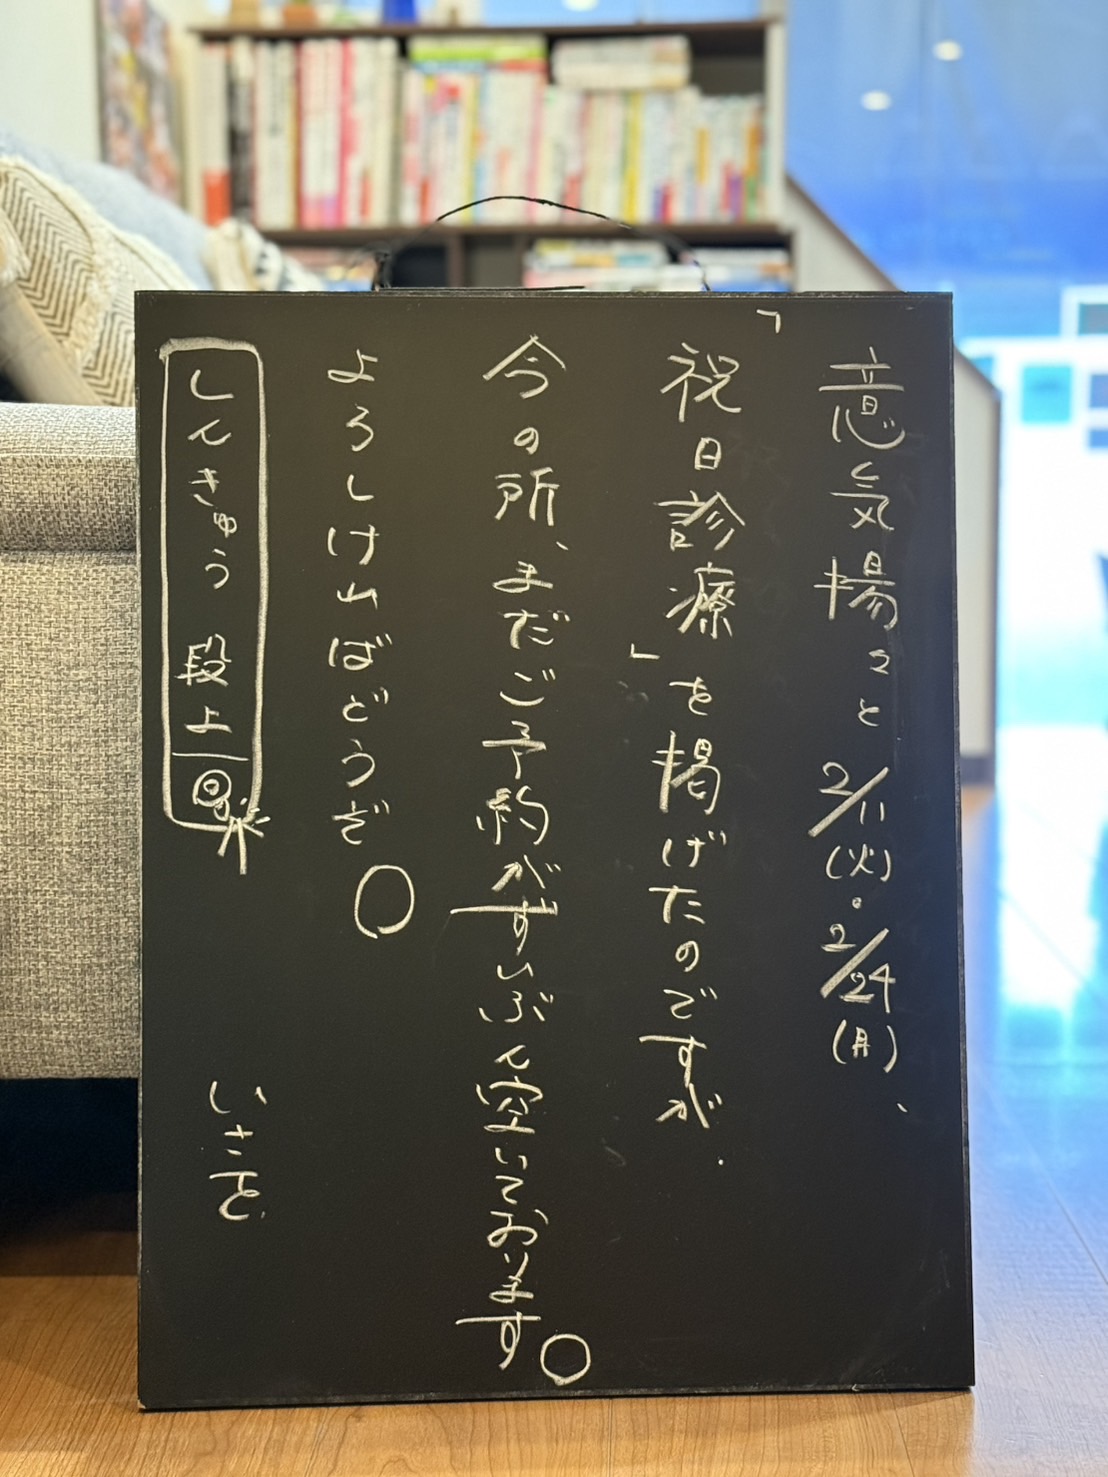 意気揚々と2/11(火)・2/24(月)、
「祝日診療」を掲げたのですが、
今の所、まだご予約がずいぶん空いております。
よろしければどうぞ。
しんきゅう 段上
いさを